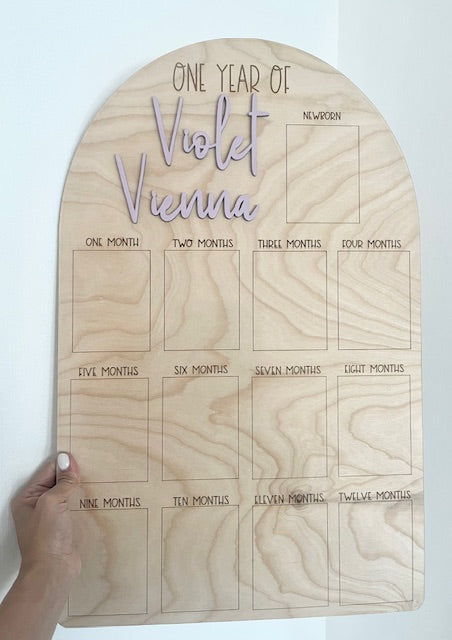 ONE YEAR OF
Violet
Vienna
NEWBORN
ONE MONTH TWO MONTHS THREE MONTHS FOUR MONTHS
FIVE MONTHS SIX MONTHS SEVEN MONTHS EIGHT MONTHS
NINE MONTHS TEN MONTHS ELEVEN MONTHS TWELVE MONTHS